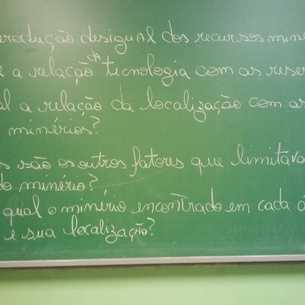 produção desigual dos recursos mine
e a relação da tecnologia com as reser
al a relação da localização com as
minérios?
s são os outros fatores que limitava
do minério?
qual o minério encontrado em cada á
e sua localização?